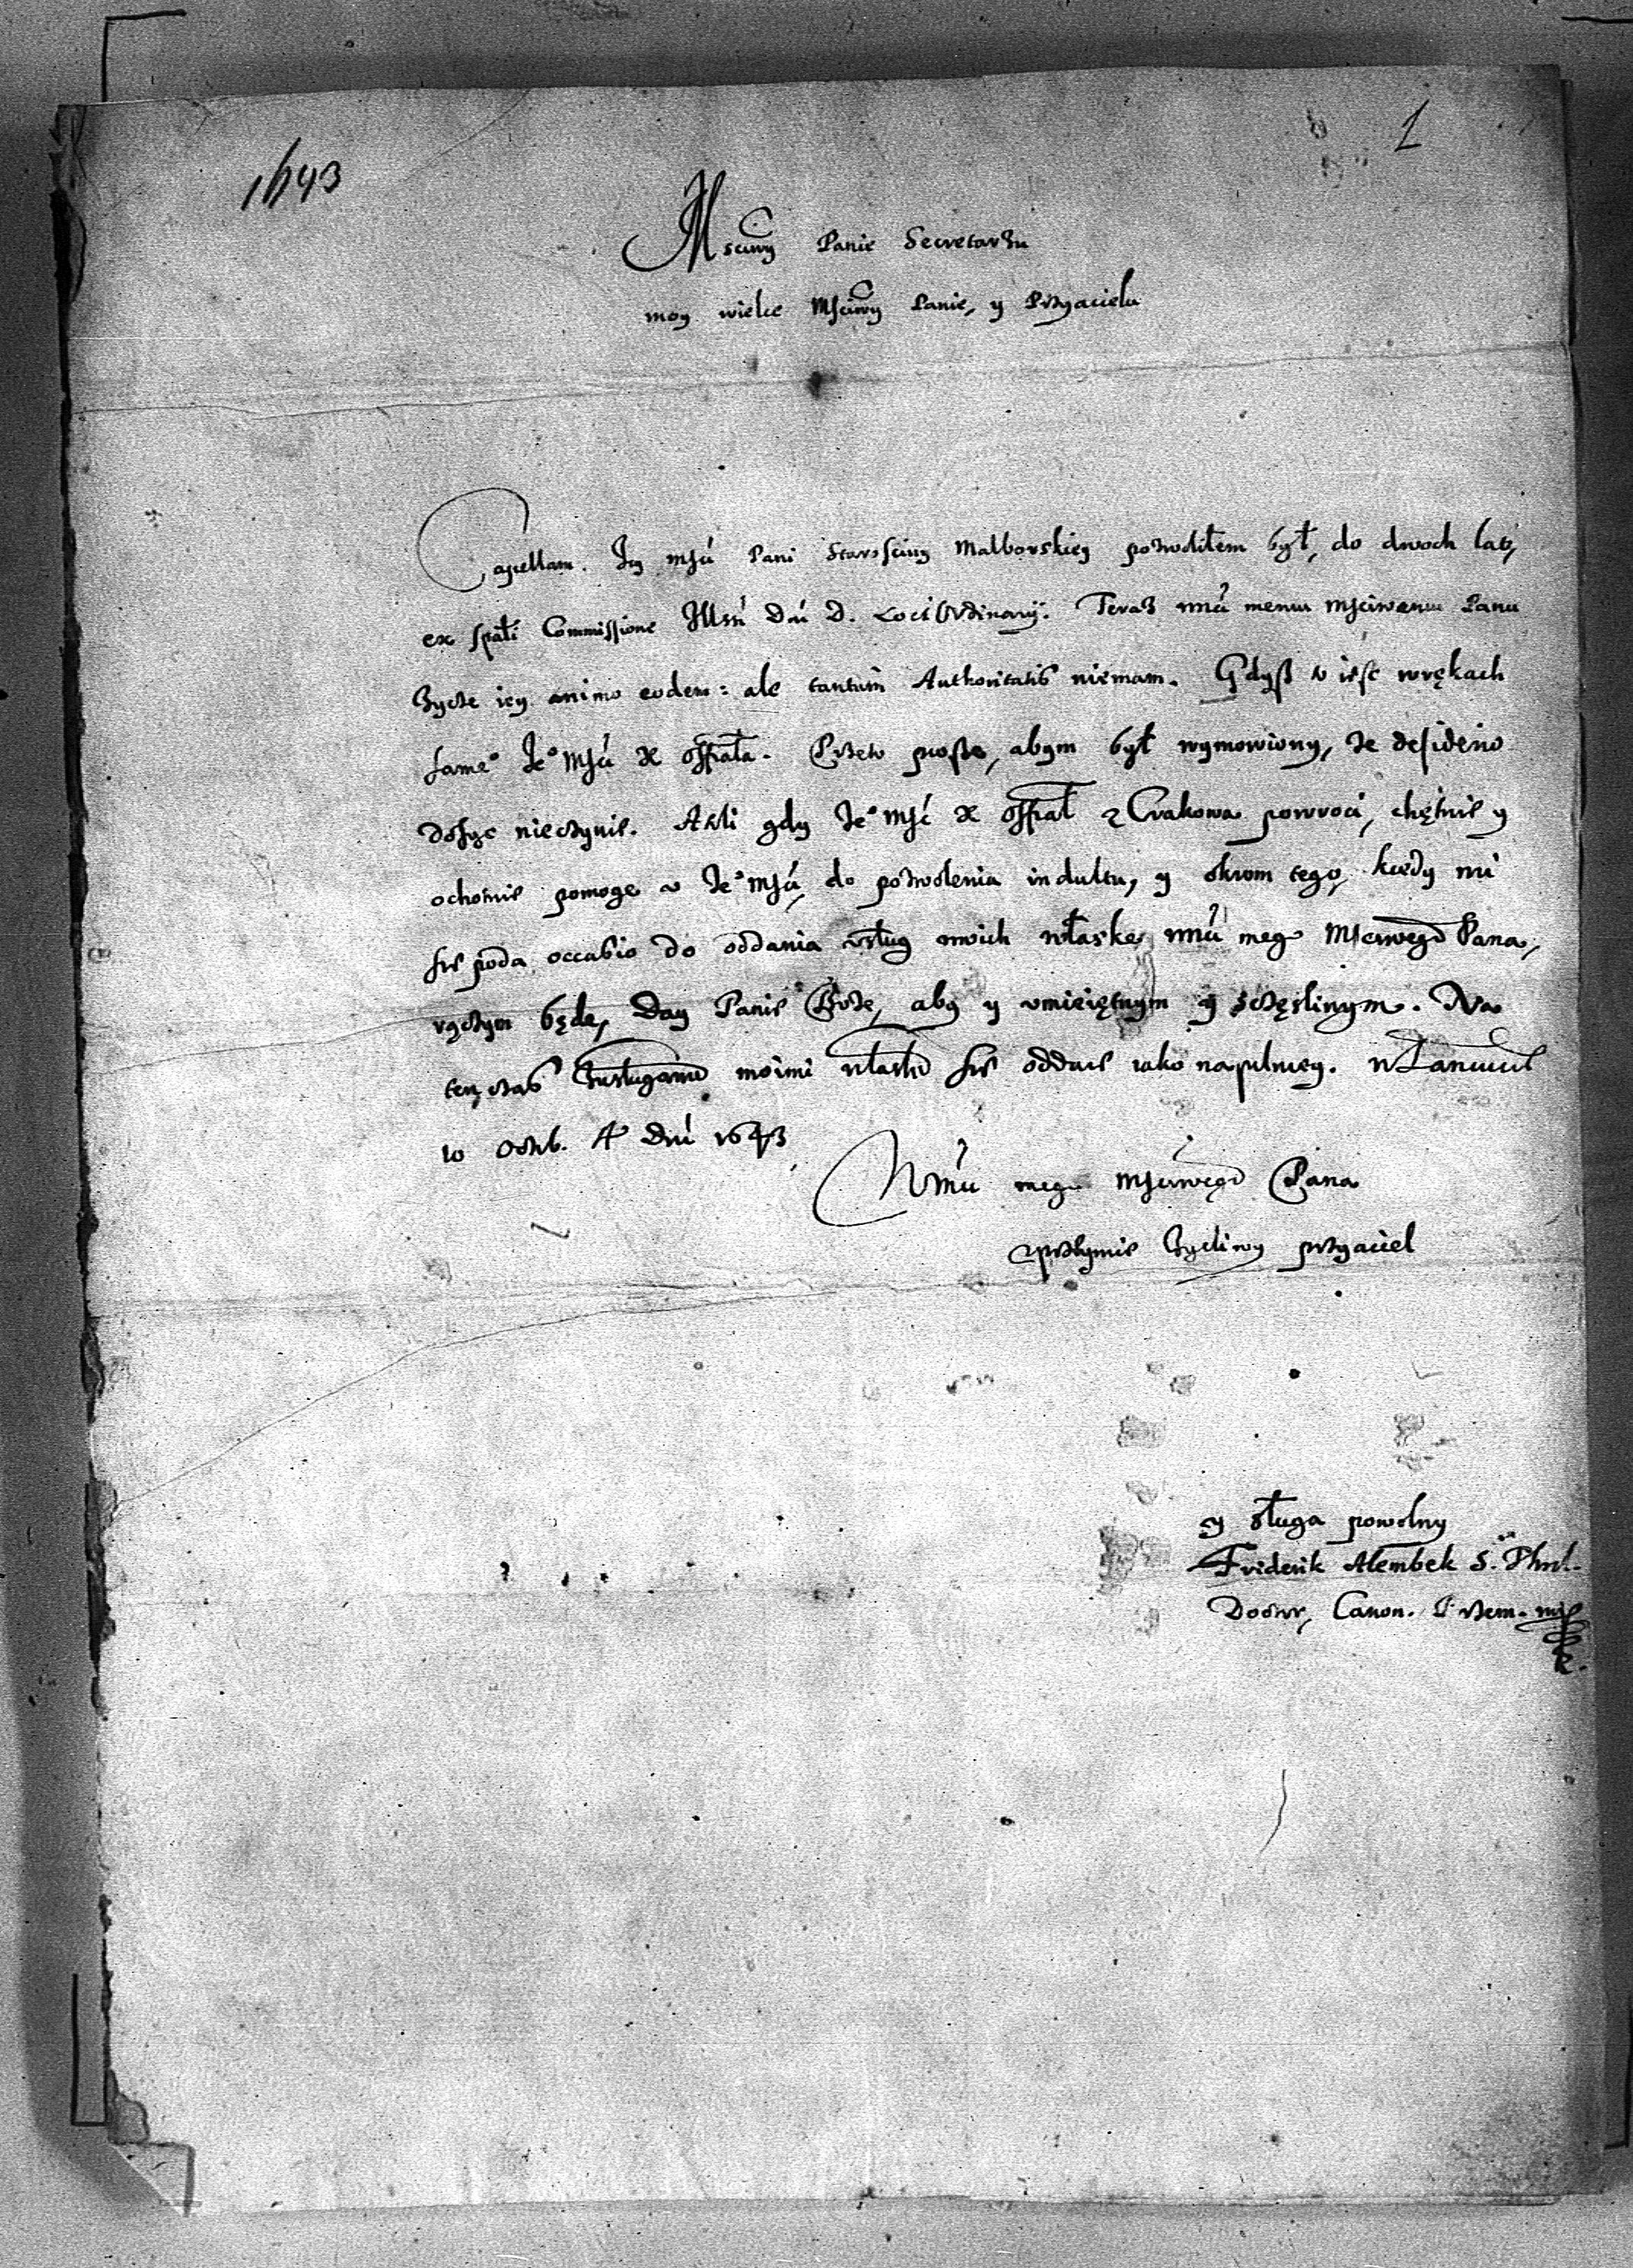 1643
1
Msciwy Panie Secretarzu
moy wielce Msciwy Panie, y Przyacielu
Capellam. Jey Mści Pani Starosciny Malborskiey pozwoliłem był, do dwoch lat,
ex spāli Commissione Illsn Dni D. Loci Ordinarij. Teraz menu Msciwemu Panu
życze iey animo eodem: ale tantum Authoritatis niemam. Gdysz to iest wrękach
same° Je° Mści X Offiała. Przeto prosze, abym był wymowiony, że desiderio
dosyc nieczynie. A iesli gdy Je° Mść X Offiał z Crakowa powroci, chętnie y
ochotnie pomogę v Je° Mści, do pozwolenia indultu, y okrom tego, kiedy mi
sie poda occasio do oddania vsług moich właskę mego Msciwego Pana,
ręczym będę, Day Panie Boże, aby y vmieiętnym y sczęsliwym. Na
ten czas zusługami moimi właske sie oddaie iako napilniey. w Łancucie
10 Octob. A° Dni 1643
mego Msciwego Pana
vprzeymie życzliwy przyaciel
y sługa powolny
Friderik Alembek S. Theol.
Doctor, Canon. Przem. mp